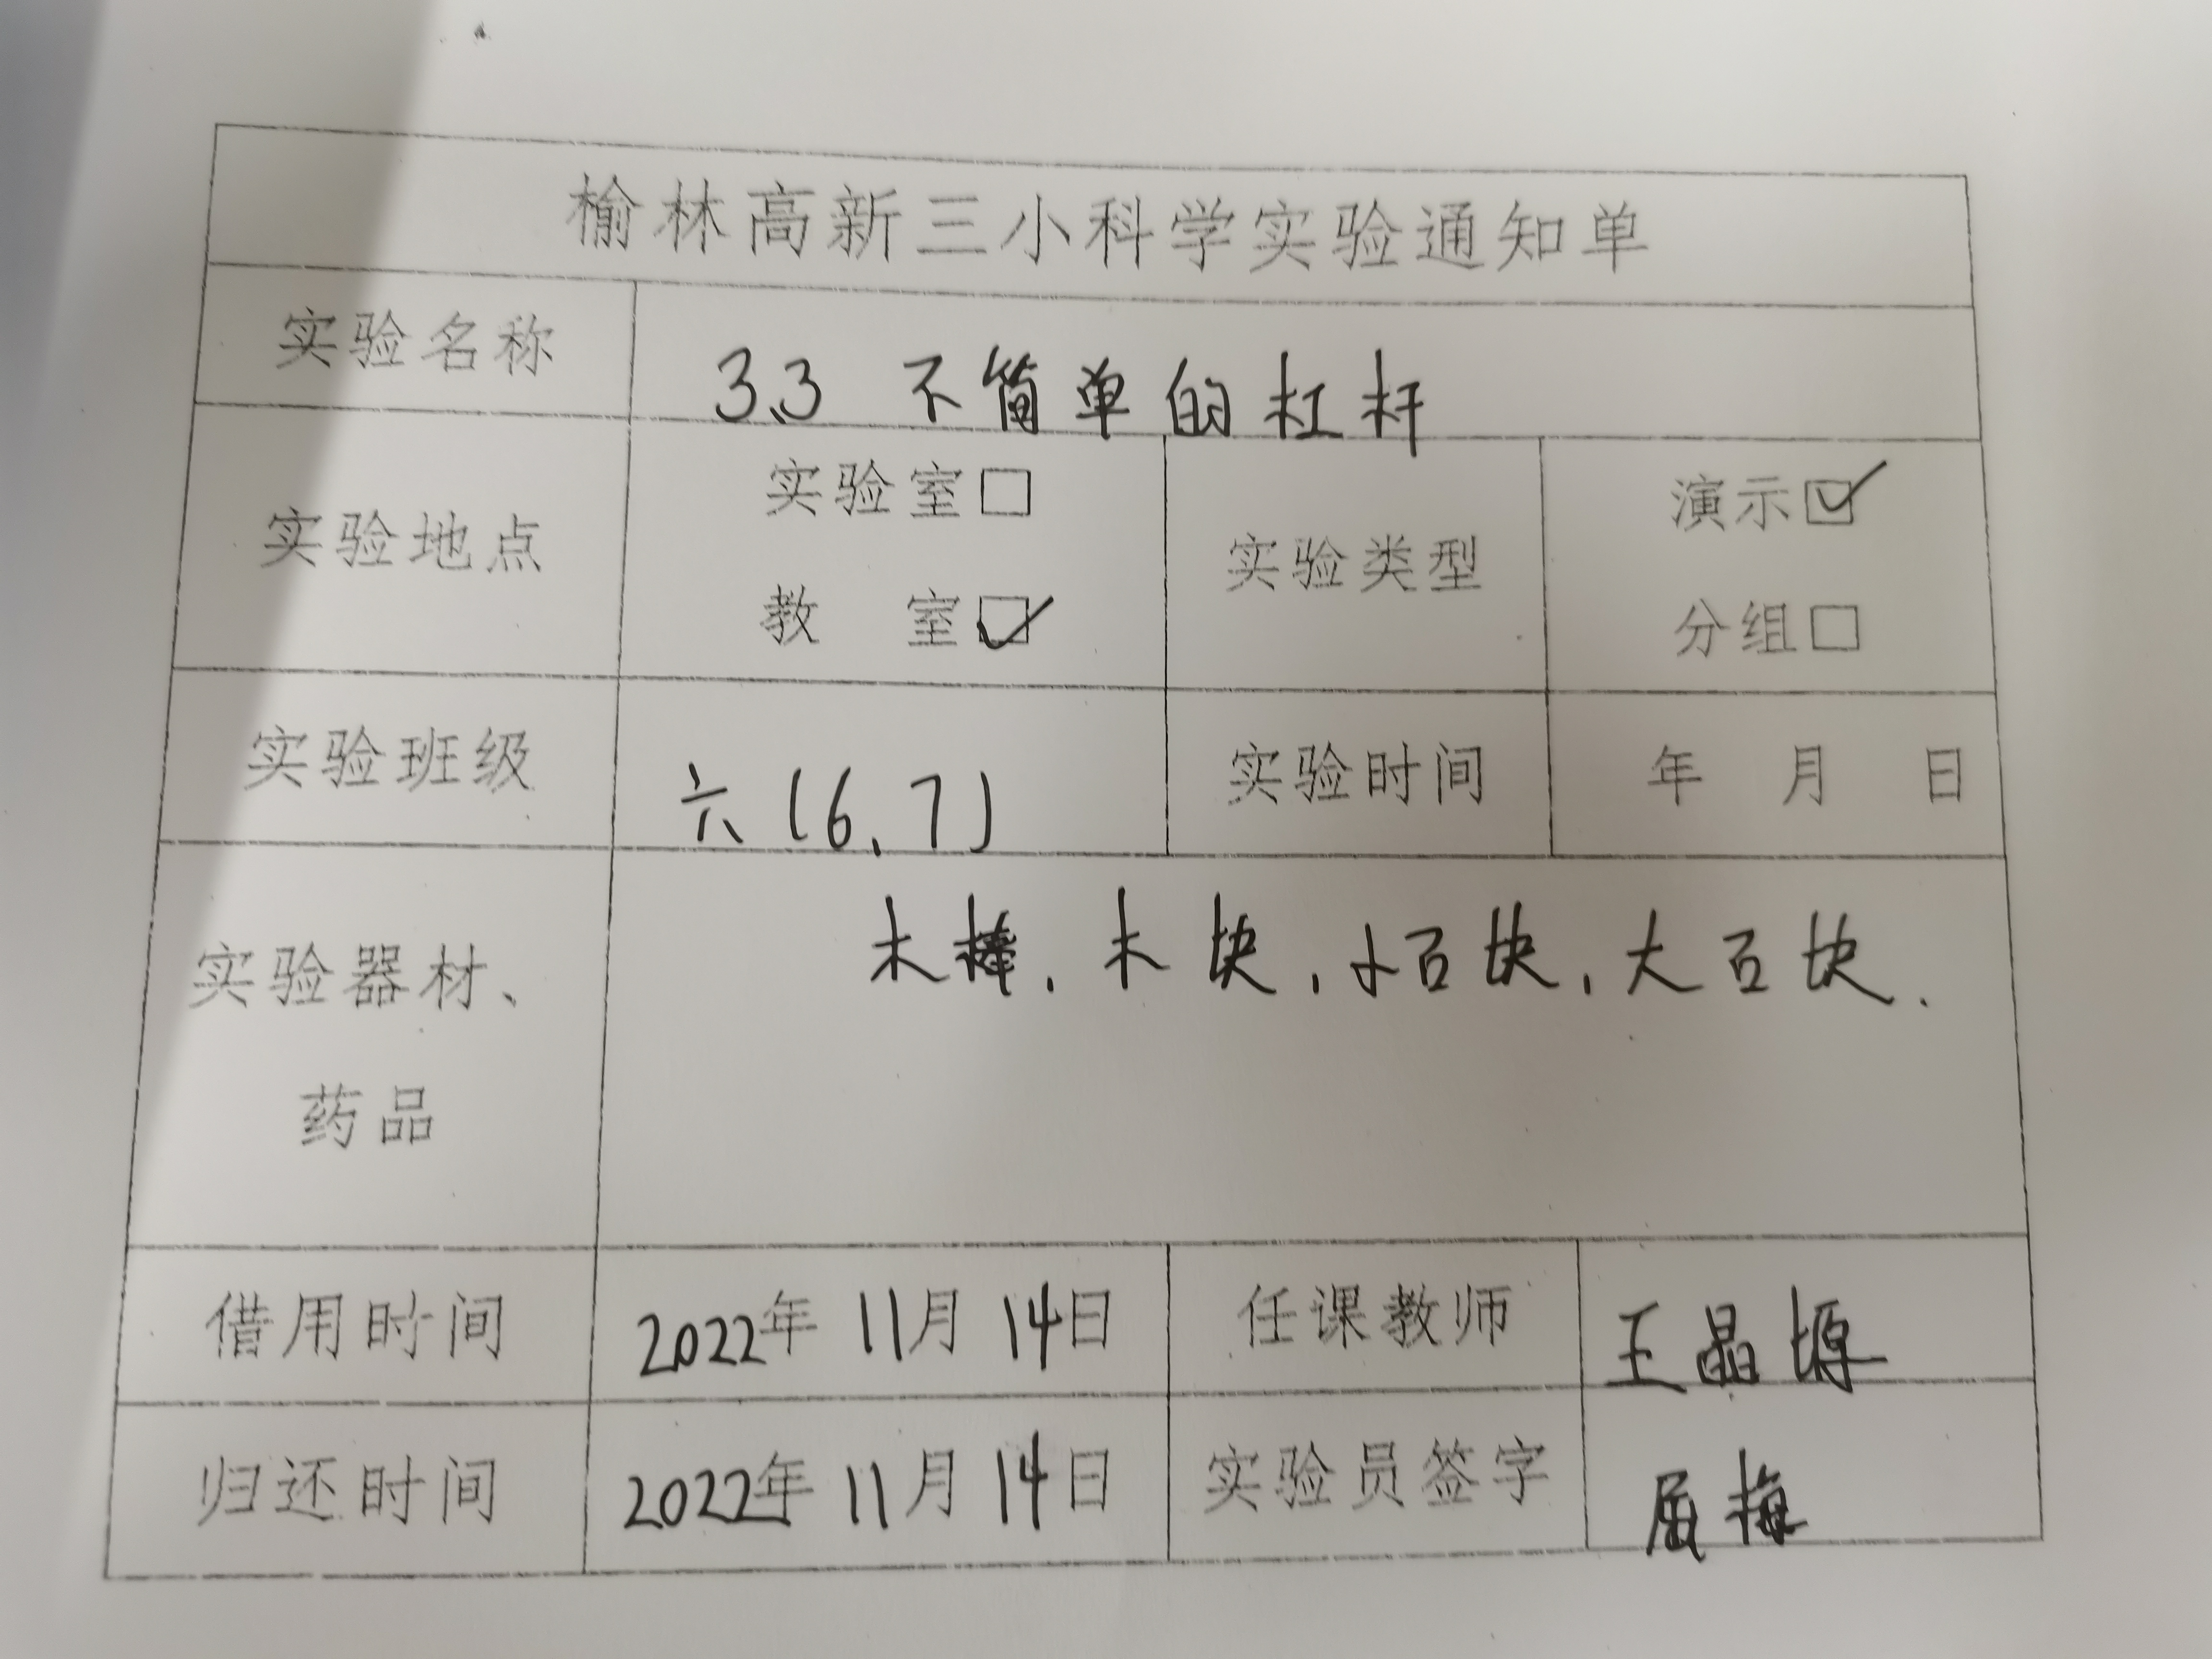 榆林高新三小科学实验通知单
实验名称 3.3 不简单的杠杆
实验地点 实验室□ 教 室☑ 实验类型 演示☑ 分组□
实验班级 六(6、7) 实验时间 年 月 日
实验器材、药品 木棒、木块、小石块、大石块、
借用时间 2022年11月14日 任课教师 王晶塬
归还时间 2022年11月14日 实验员签字 屈梅